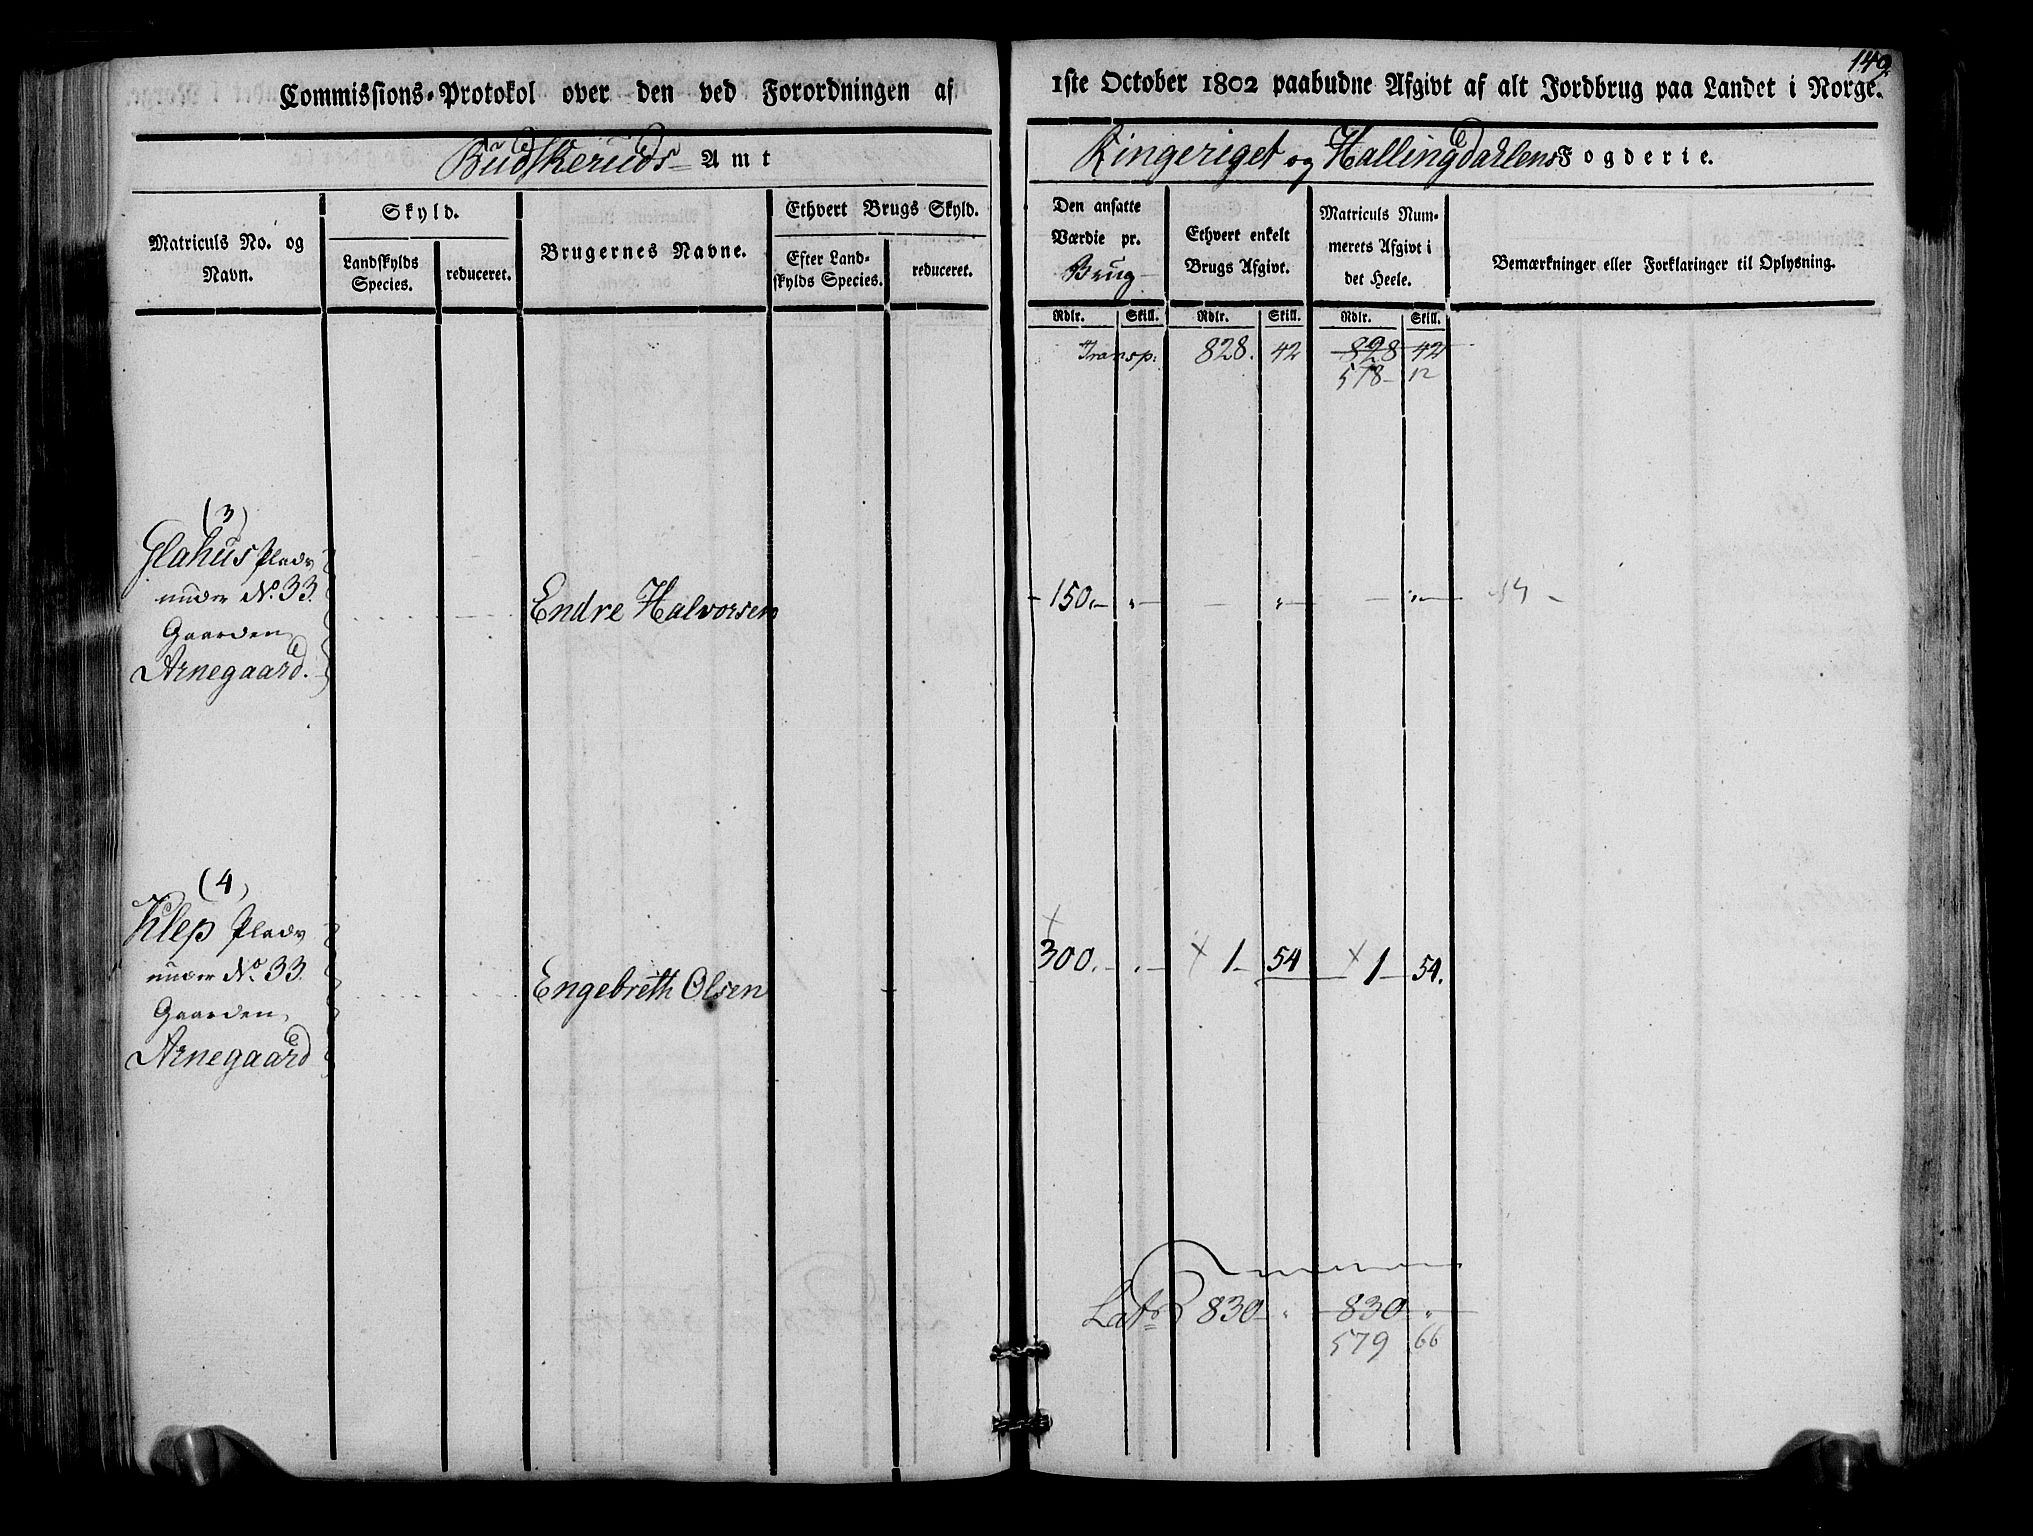 149.
Commissions-Protokol over den ved Forordningen af 1ste October 1802 paabudne Afgivt af alt Jordbrug paa Landet i Norge.
Budskeruds Amt
Ringeriget og Hallingdahlens Fogderie.
Matriculs No. og Navn.
Skyld.
Landskylds Species.
reduceret.
Brugernes Navne.
Ethvert Brugs Skyld.
Efter Landskylds Species.
reduceret.
Den ansatte Værdie pr. Brug
Ethvert enkelt Brugs Afgivt.
Matriculs Nummerets Afgivt i det Heele.
Bemærkninger eller Forklaringer til Oplysning.
Rdlr. Skill. Rdlr. Skill. Rdlr. Skill.
Transp: 828. 42 828 42
578 12
(3)
Glahus Plads
under No. 33.
Gaarden
Arnegaard.
Endre Halvorsen 150
(4)
Klep Plads
under No. 33.
Gaarden
Arnegaard
Engebreth Olsen 300. 1 54 1 54.
Lats 830 830
579 66